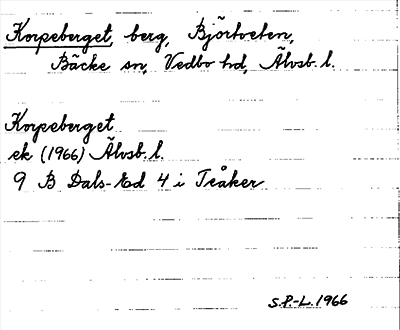 Korpeberget, berg, Björtveten,
Bäcke sn, Vedbo hd, Älvsb. l.
Korpeberget
ek (1966) Älvsb. l.
9 B Dals-Ed 4 i Teåker
S.P.-L. 1966